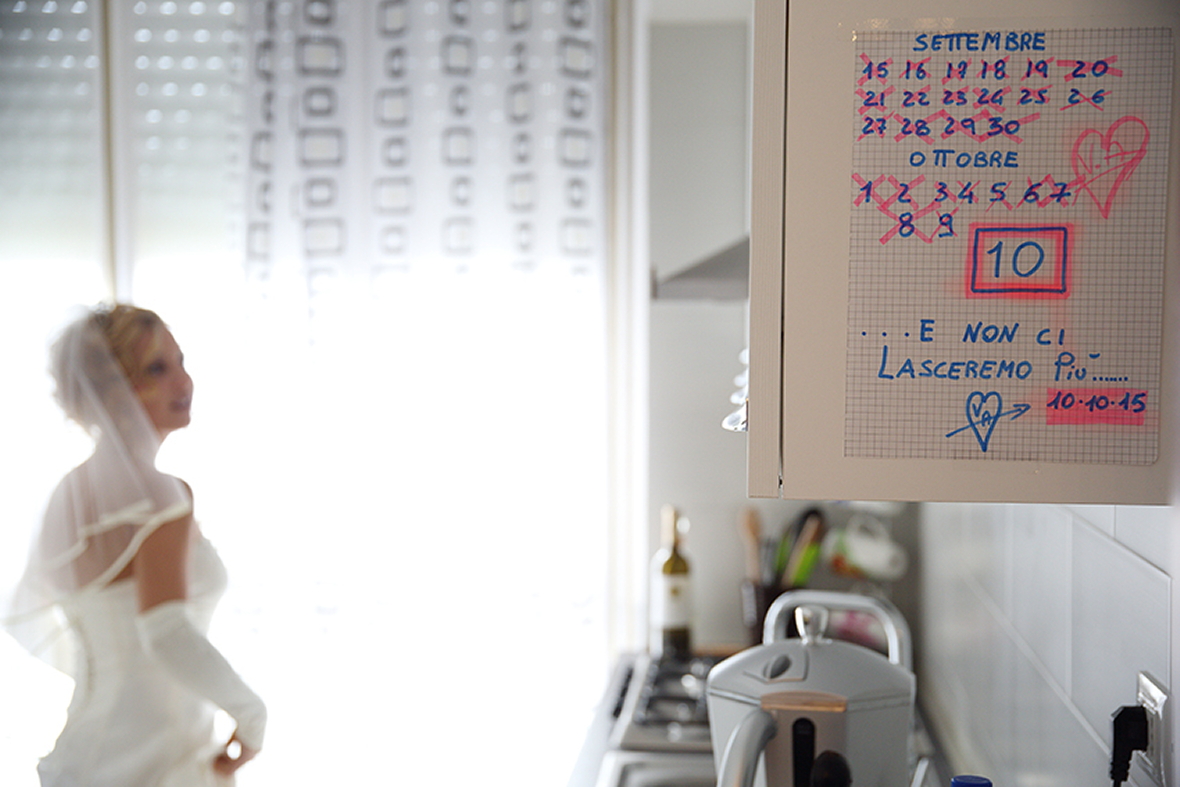 SETTEMBRE
15 16 17 18 19 20
21 22 23 24 25 26
27 28 29 30
OTTOBRE
1 2 3 4 5 6 7
8 9
10
...E NON CI
LASCEREMO Più......
V A 10.10.15